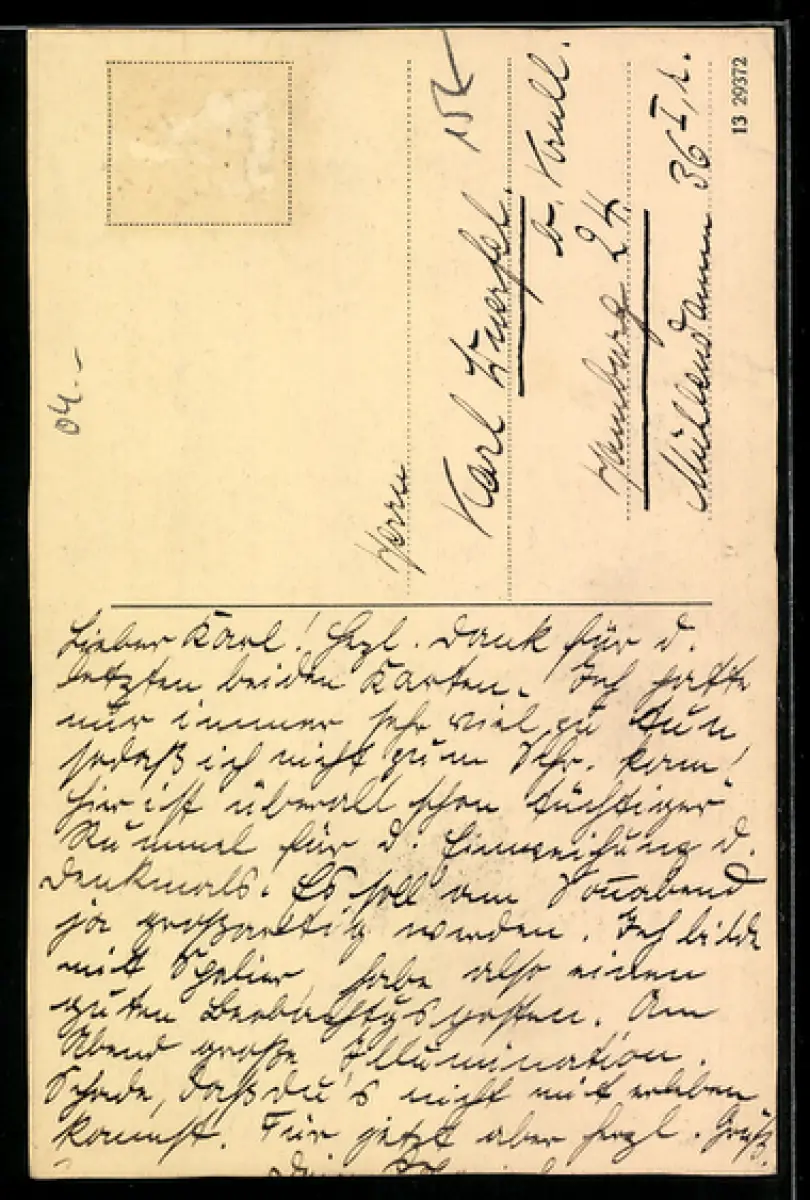 Herrn
Karl
b. Krull.
Hamburg 24.
Mühlendamm 36 I, r.
13 29372
04.-
Lieber Karl! Hzl. Dank für d.
letzten beiden Karten. Ich hatte
nur immer sehr viel zu tun
sodaß ich nicht zum Schr. kam!
Hier ist überall schon tüchtiger
Rummel für d. Einweihung d.
Denkmals. Es soll am Sonnabend
ja großartig werden. Ich bilde
mit Spalier, habe also einen
guten Beobachtgsposten. Am
Abend große Illumination.
Schade, daß du's nicht mit erleben
kannst. Für jetzt aber herzl. Grüß.